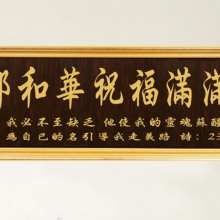 和華祝福滿滿
我必不至缺乏他使我的靈魂甦醒
爲自己的名引導我走義路 詩：23